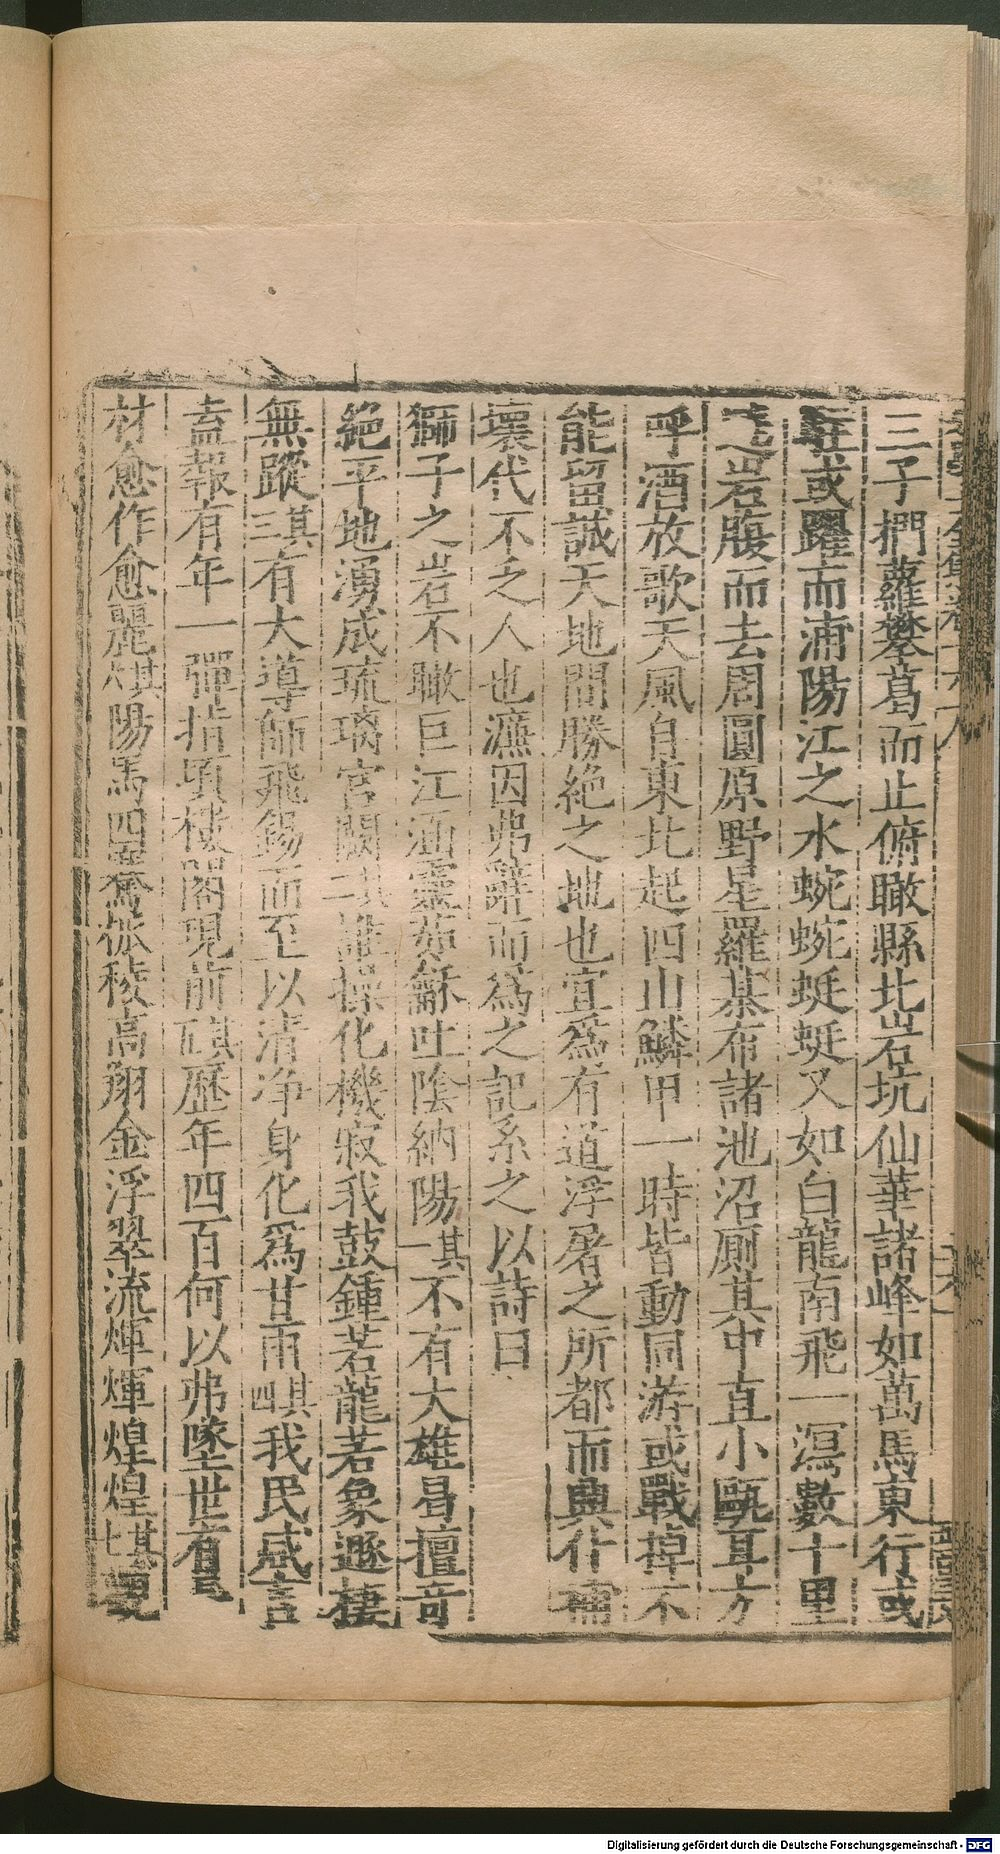 三子捫蘿攀葛而止俯瞰縣北岩坑仙華諸峰如萬馬東行或
或躍而浦陽江之水蜿蜿蜒蜒又如白龍南飛一瀉數十里
岩腹而去周圓原野星羅棊布諸池沼廁其中直小甌耳方
呼酒放歌天風自東北起四山鱗甲一時皆動同游或戰掉不
能留誠天地間勝絕之地也宜爲有道浮屠之所都而興作
壞代不乏人也濂因弗辭而爲之記系之以詩曰
獅子之岩不瞰巨江涵靈茹龢吐陰納陽其一不有大雄曷擅奇
絕平地湧成琉璃宮闕其二誰操化機寂我鼓鍾若龍若象遯棲
無蹤其三有大導師飛錫而至以清淨身化爲甘雨其四我民咸言
盍報有年一彈指頃樓閣現前其五歷年四百何以弗墜世有
材愈作愈麗其六陽馬四騫觚稜高翔金浮翠流煇煇煌煌其七
Digitalisierung gefördert durch die Deutsche Forschungsgemeinschaft - DFG